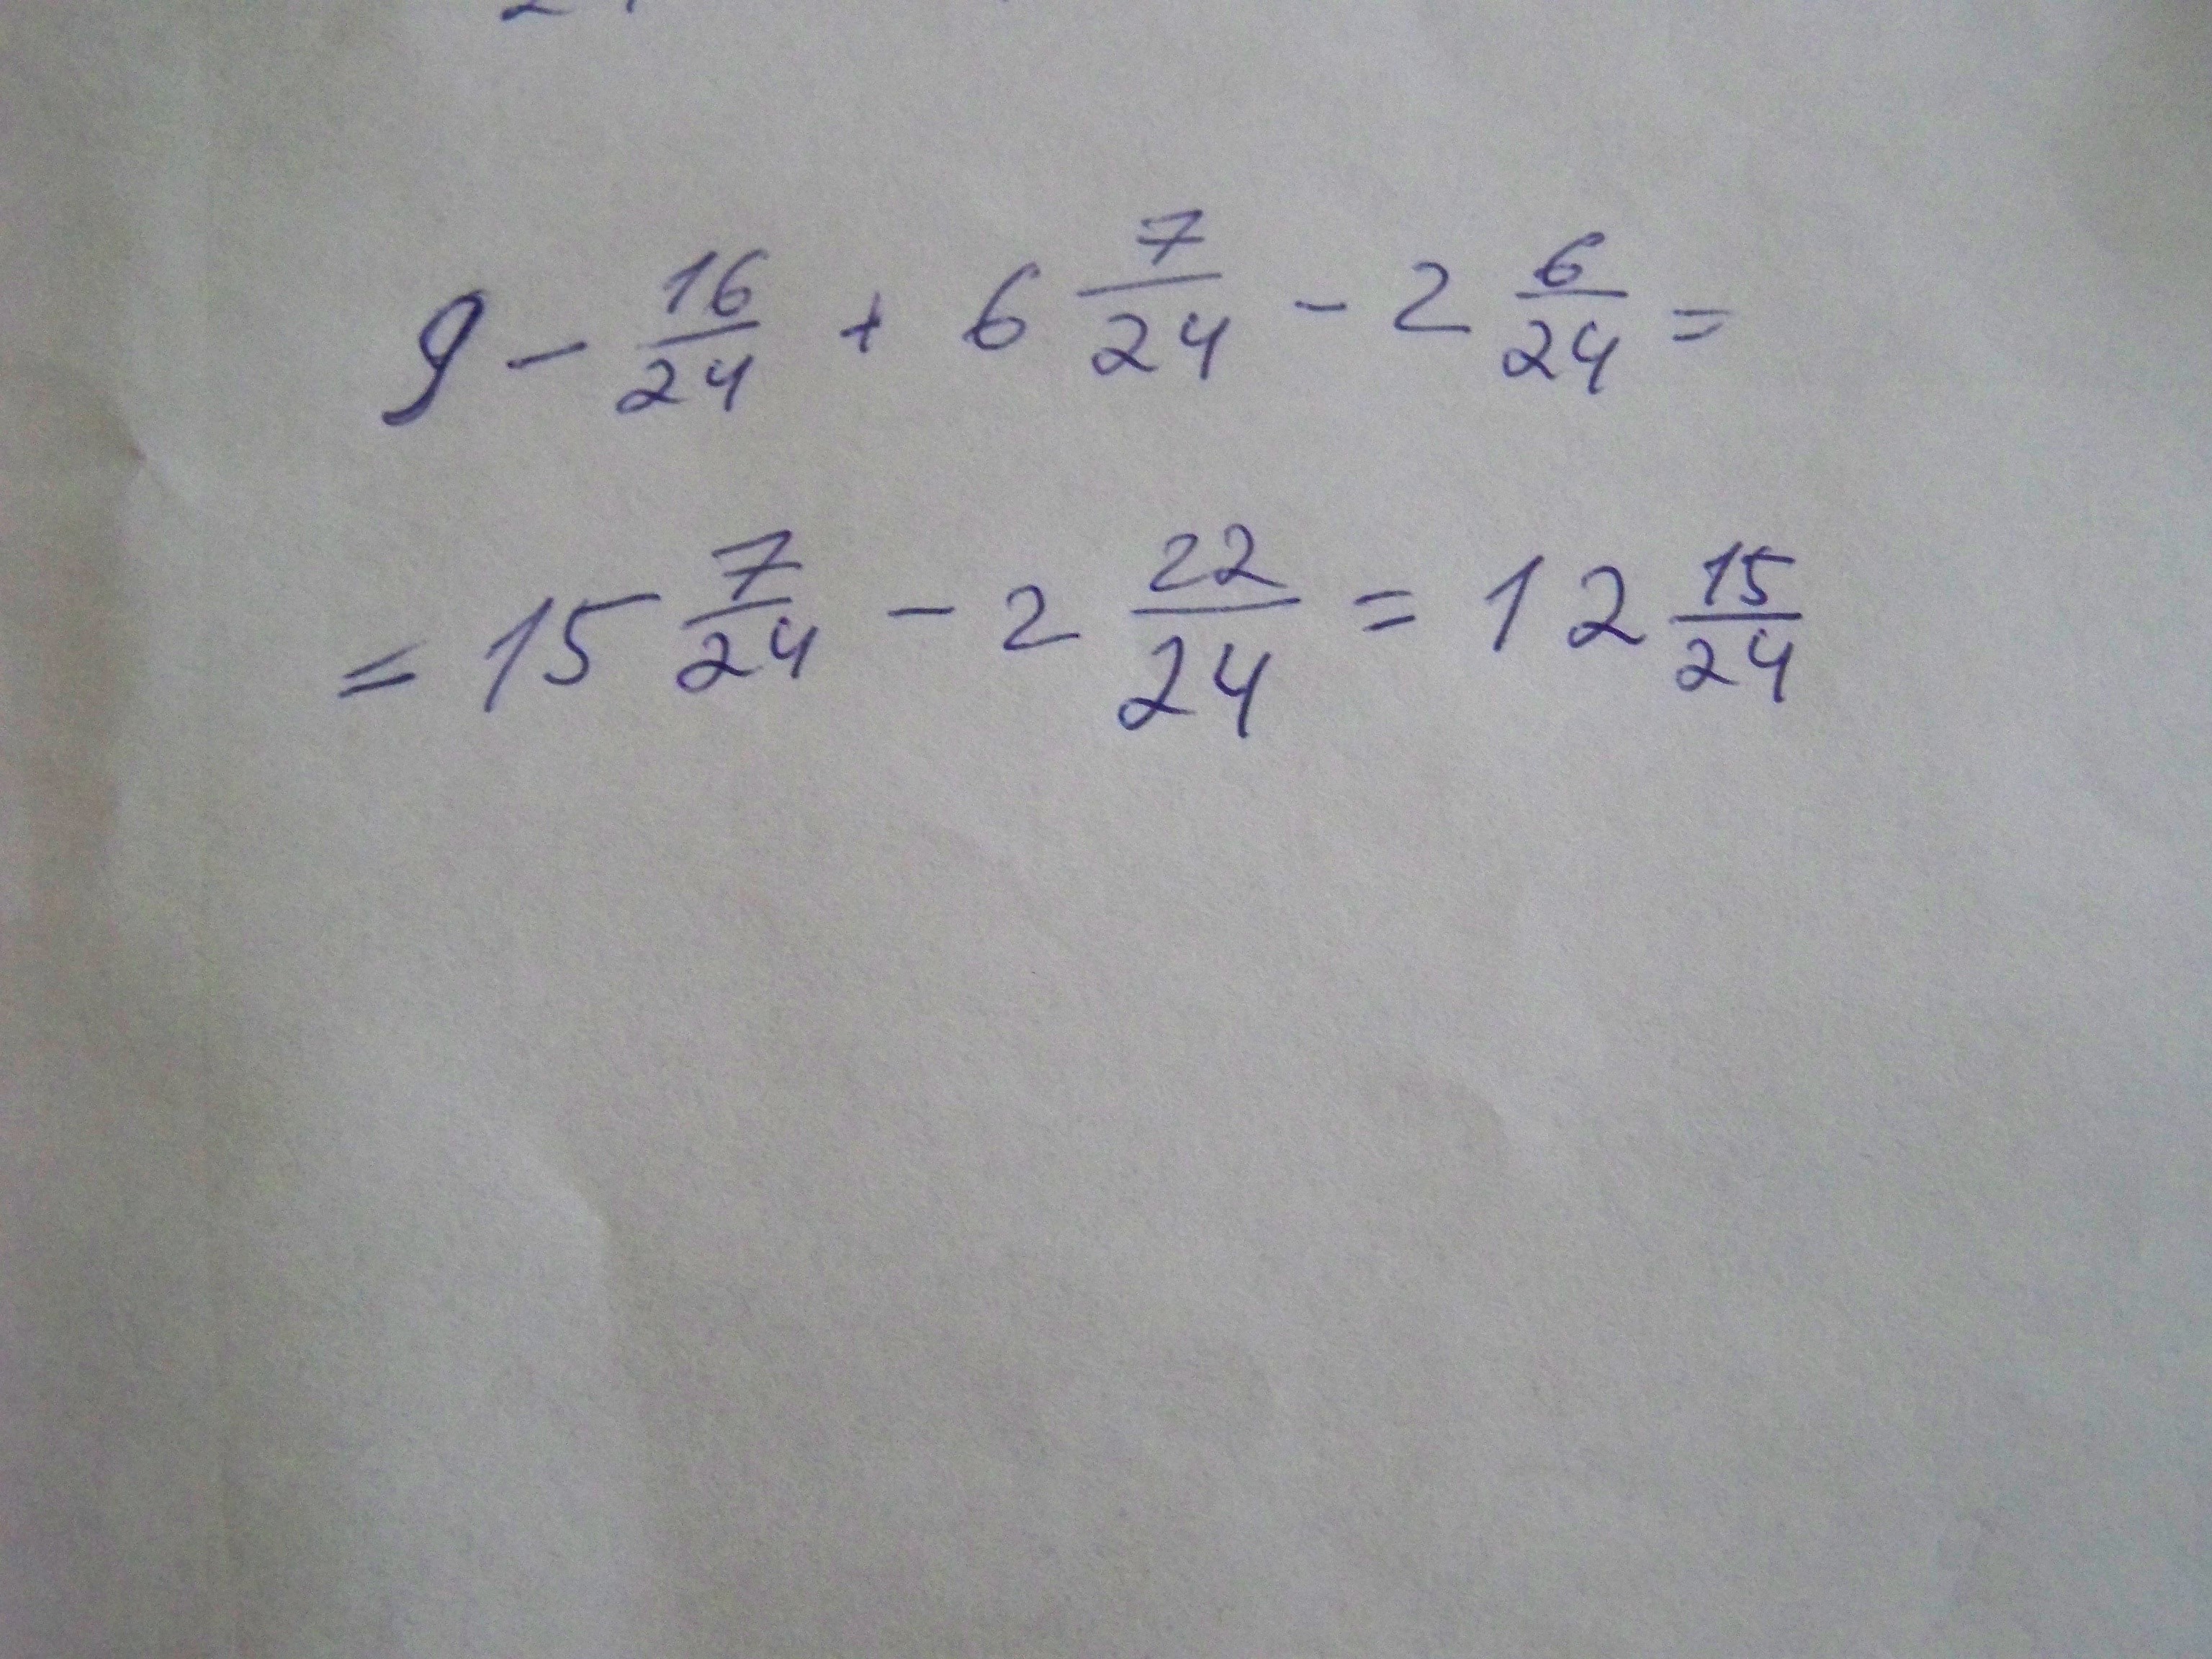 9 - 16/24 + 6 7/24 - 2 6/24 =
= 15 7/24 - 2 22/24 = 12 15/24